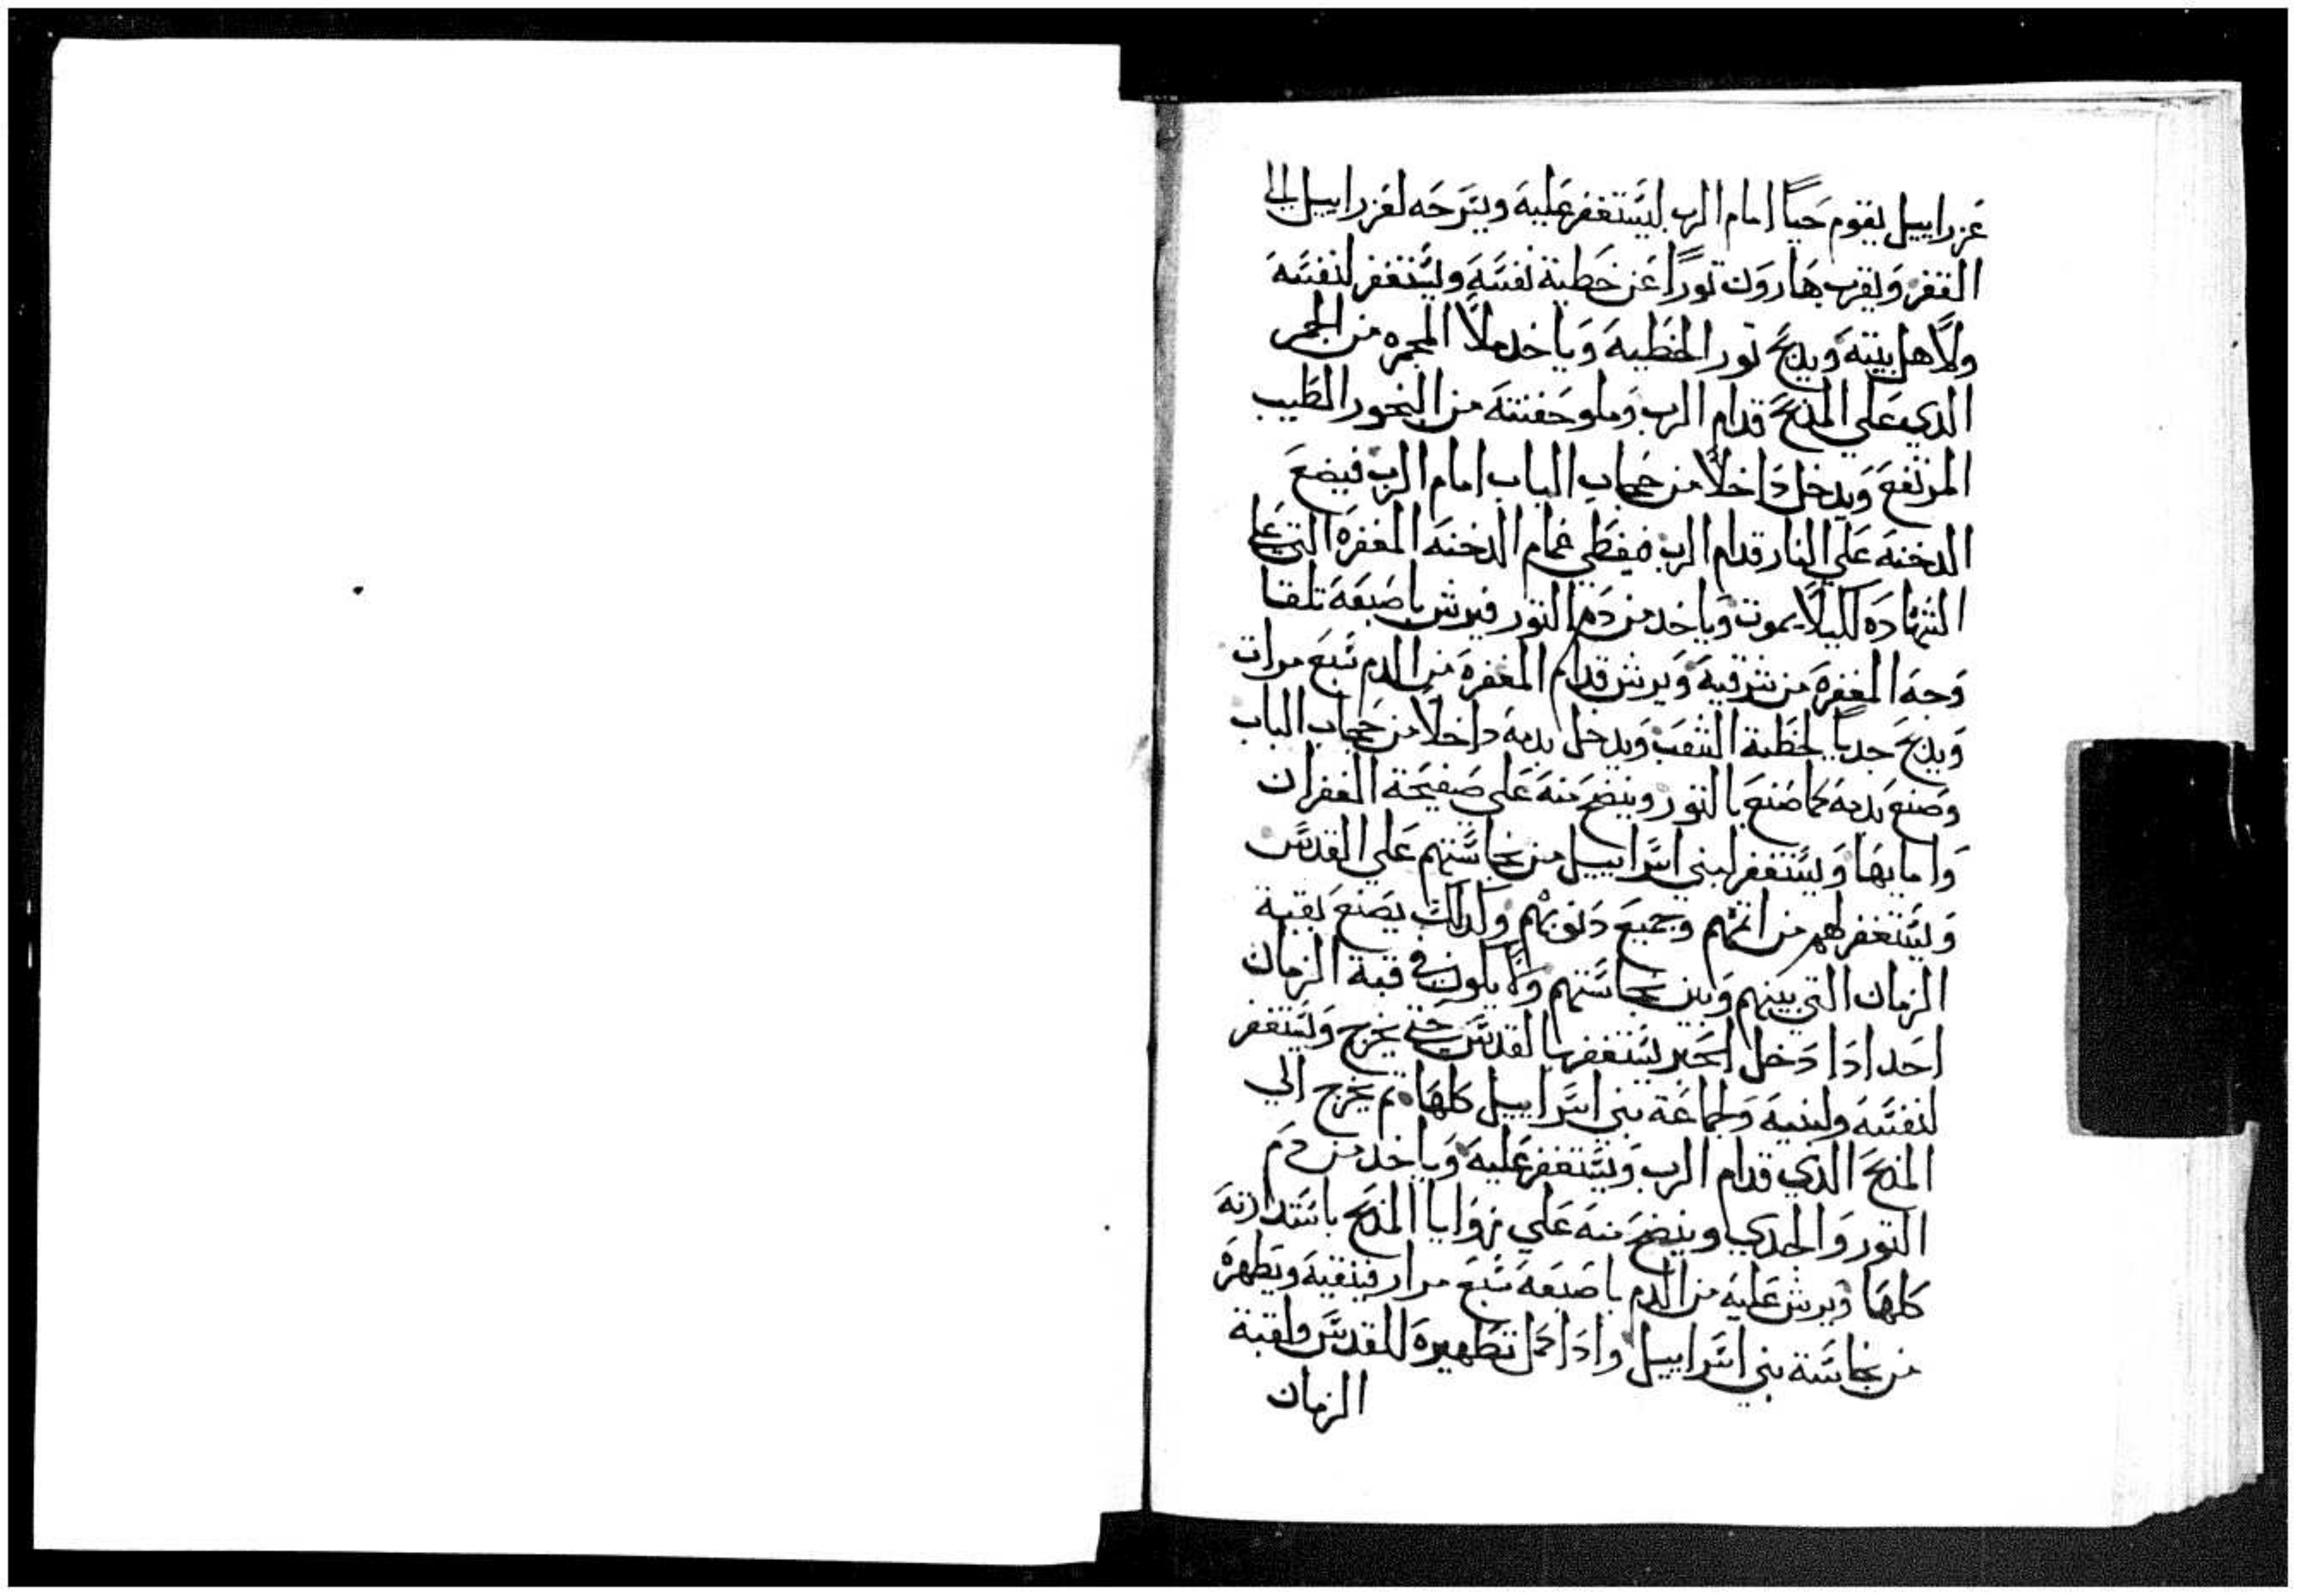 عزراييل يقوم حياً امام الرب ليستغفر عليه ويترحه لعزراييل الي
القفر ويقرب هارون توراً عن خطية نفسه ويستغفر لنفسه
ولاهل بيته ويدبح تور الخطيه وياخد ملا المجمره من الجمر
الدي علي المدبح قدام الرب وملو حفنته من البخور الطيب
المرتفع ويدخل داخلاً من حجاب الباب امام الرب فيضع
الدخنه علي النار قدام الرب فيغطي غمام الدخنه المغفره التي علي
الشهاده لكيلا يموت وياخد من دم التور فيرش باصبعه تلقا
وجه المغفره من شرقيه ويرش قدام المغفره من الدم سبع مرات
ويدبح جدياً لخطية الشعب ويدخل بدمه داخلاً من حجاب الباب
وصنع بدمه كما صنع بالتور وينضح منه علي صفيحة الغفران
وامامها ويستغفر لبني اسراييل من نجاستهم علي القدس
ويستغفر لهم من اتمهم وجميع دنوبهم وكدلك يصنع بقبة
الزمان التي بينهم وبين نجاستهم ولا يكون في قبة الزمان
احد ادا دخل الحبر يستغفر بها القدس حتي يخرج ويستغفر
لنفسه ولبنيه ولجماعة بني اسراييل كلها تم يخرج الي
المدبح الدي قدام الرب ويستغفر عليه وياخد من دم
التور والجدي وينضح منه علي زوايا المدبح باستدارته
كلها ويرش عليه من الدم باصبعه سبع مرار فينقيه ويطهره
من نجاسة بني اسراييل وادا كمل تطهيره للقدس ولقبة
الزمان